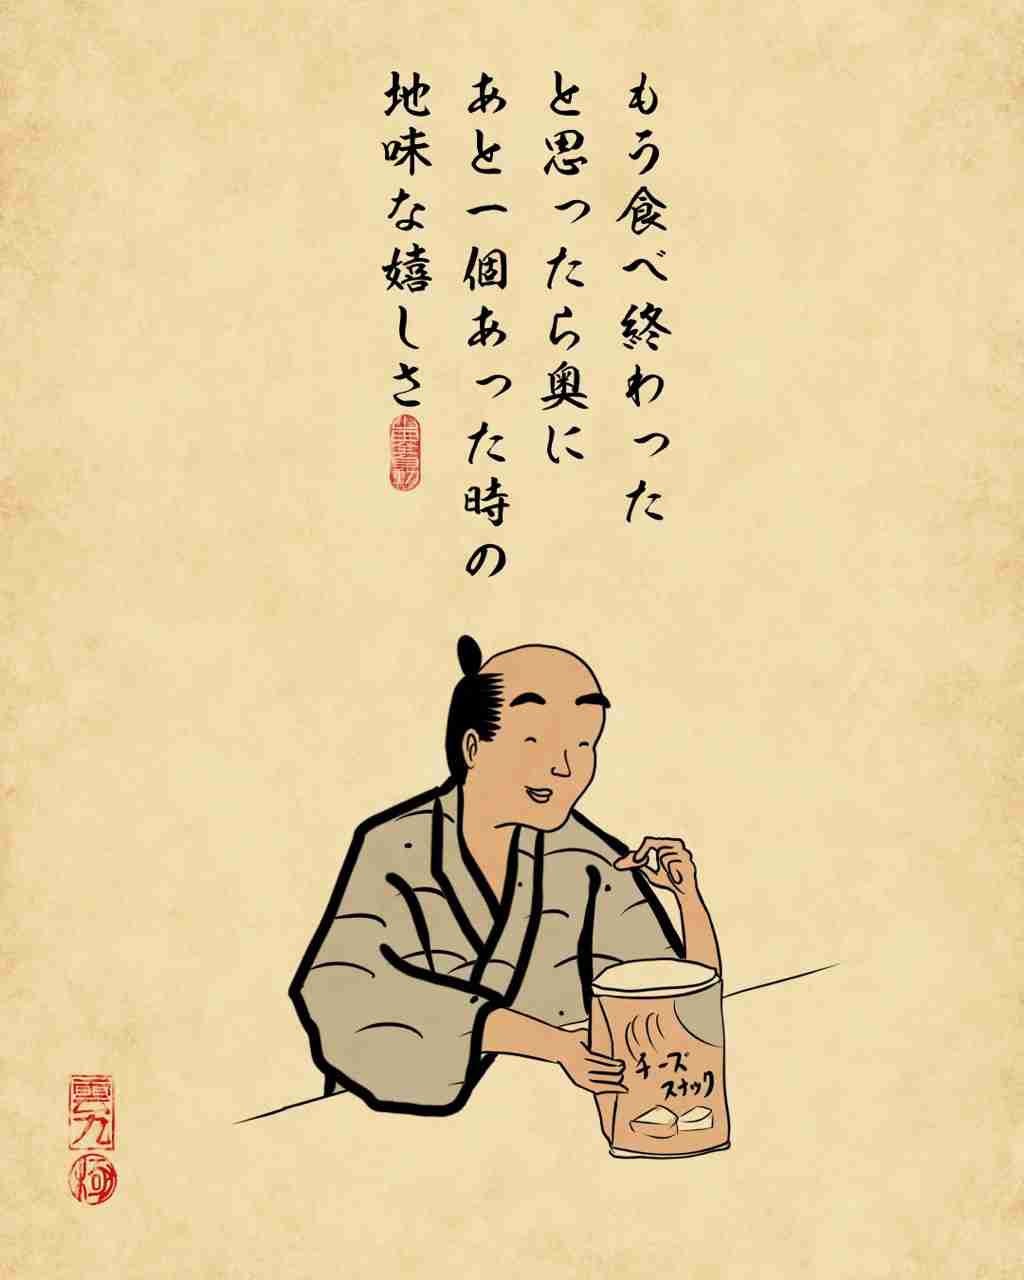 もう食べ終わった
と思ったら奥に
あと一個あった時の
地味な嬉しさ
チーズ
スナック